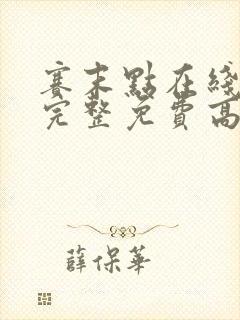 賽末點在綫
完整免費高
薛保華